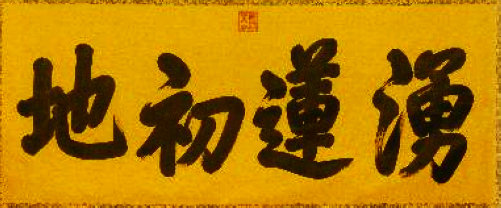 湧蓮初地